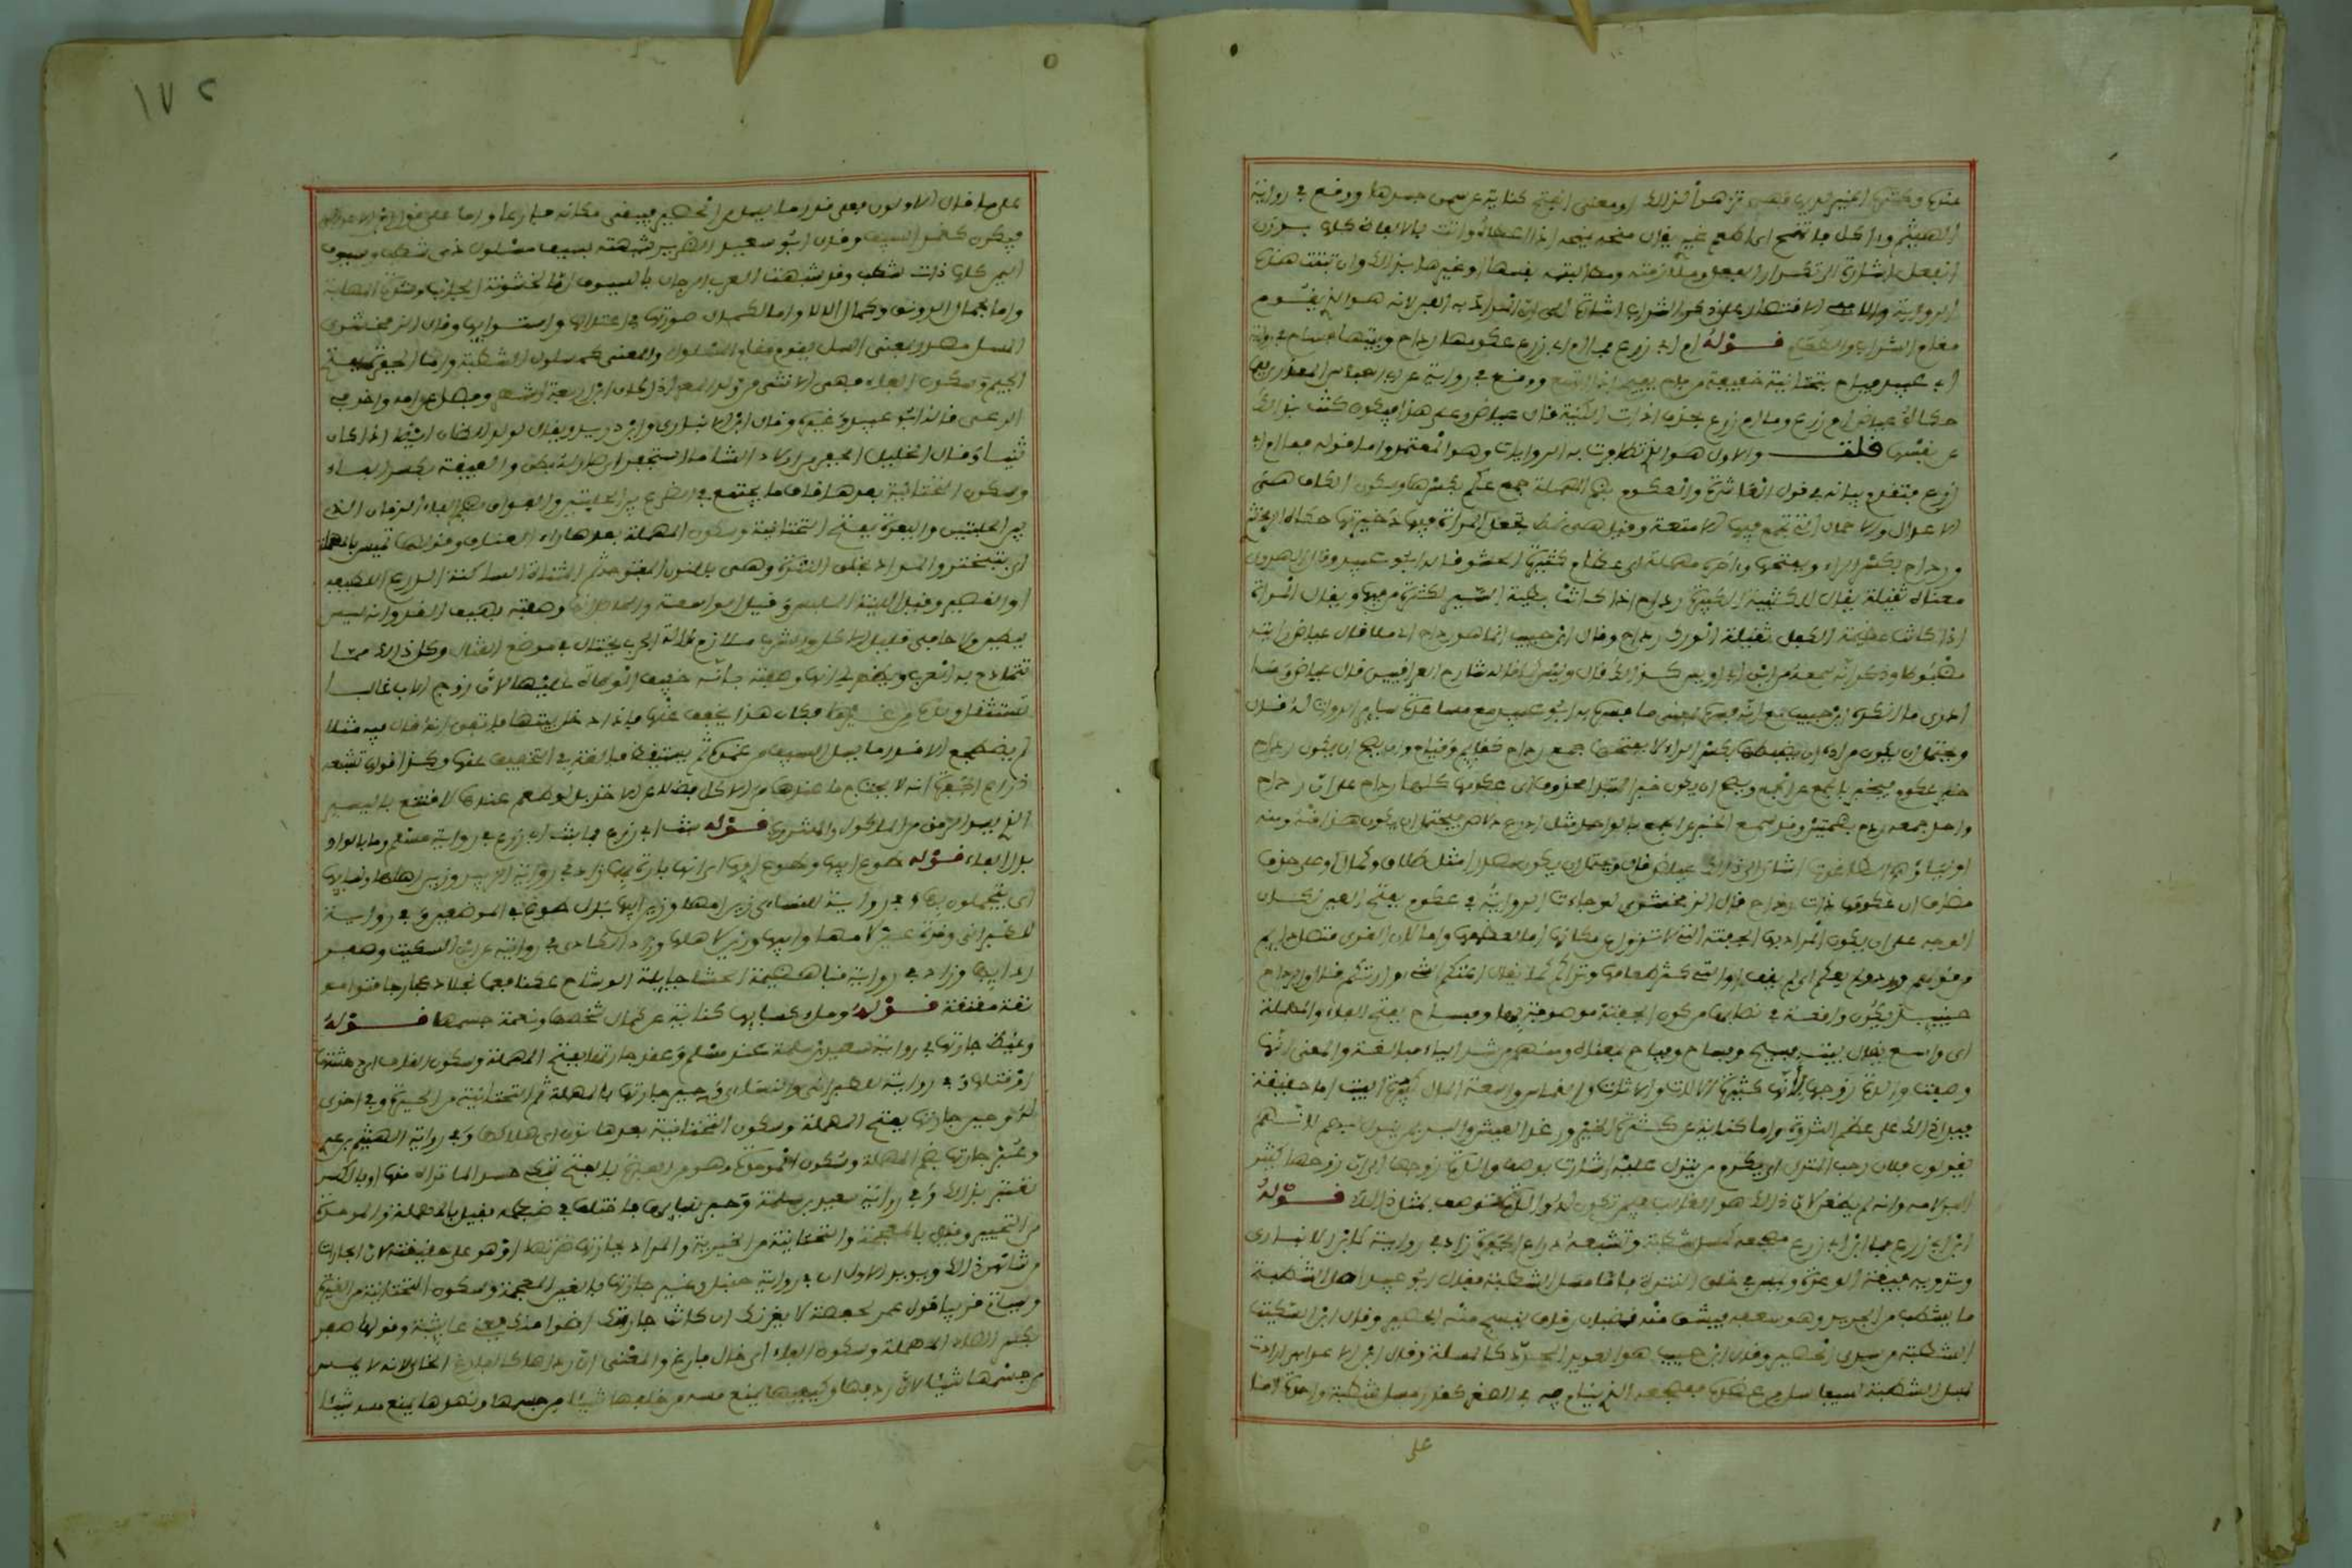 الهيثم وآكل فأتمنح أي أطعم غيري يقال منحه يمنحه إذا أعطاه وأتت بالألفاظ كلها بوزن
أتفعل إشارة إلى تكرار الفعل وملازمته ومطالبة نفسها أو غيرها بذلك فإن ثبتت هذه
الرواية وإلا ففي الاقتصار على ذكر الشراب إشارة إلى أن المراد به اللبن لأنه هو الذي يقوم
مقام الشراب والطعام قوله أم أبي زرع فما أم أبي زرع عكومها رداح وبيتها فساح في رواية
أبي عبيد فياح بتحتانية خفيفة من فاح يفيح إذا اتسع ووقع في رواية أبي العباس العذري فيما
حكاه عياض أم زرع وما أم زرع بحذف أداة الكنية قال عياض وعلى هذا فيكون كنت بذلك
عن نفسها قلت والأول هو الذي تظافرت به الروايات وهو المعتمد وأما قوله فما أم أبي
زرع فتقدم بيانه في قول العاشرة والعكوم بضم المهملة جمع عكم بكسرها وسكون الكاف هي
الأعدال والأحمال التي تجمع فيها الأمتعة وقيل هي نمط تجعل المرأة فيها ذخيرتها حكاه الزمخشري
ورداح بكسر الراء وبفتحها وآخره مهملة أي عظام كثيرة الحشو قاله أبو عبيد وقال الهروي
معناه ثقيلة يقال للكتيبة الكبيرة رداح إذا كانت بطيئة السير لكثرة من فيها ويقال للمرأة
إذا كانت عظيمة الكفل ثقيلة الورك رداح وقال ابن حبيب إنما هو رداح أي ملأى قال عياض رأيته
مضبوطا وذكر أنه سمعه من ابن أبي أويس كذلك قال وليس كما قاله شارح العراقيين قال عياض وما
أدري ما أنكره ابن حبيب مع أنه فسره بمعنى ما فسره به أبو عبيد مع مساعدة سائر الرواة له قال
ويحتمل أن يكون مراده أن يضبطها بكسر الراء لا بفتحها جمع رادح كقائم وقيام ويصح أن يكون رداح
خبر عكوم فيخبر بالجمع عن الجمع ويصح أن يكون خبر المبتدأ محذوف أي عكومها كلها رداح على أن رداح
واحد جمعه ردح بضمتين وقد سمع الخبر عن الجمع بالواحد مثل أدرع دلاص فيحتمل أن يكون هذا منه ومنه
أولياؤهم الطاغوت أشار إلى ذلك عياض قال ويحتمل أن يكون مصدرا مثل طلاق وكمال أو على حذف
مضاف أي عكومها ذات رداح قال الزمخشري لو جاءت الرواية في عكوم بفتح العين لكان
الوجه على أن يكون المراد بها الجفنة التي لا تزول عن مكانها إما لعظمها وإما لأن القرى متصل دائم
من قولهم ورد ولم يعكم أي لم يقف أو التي كثر طعامها وتراكم كما يقال اعتكم الشيء وارتكم قال والرداح
حينئذ يكون واقعة في نصابها من كون الجفنة موصوفة بها وفساح بفتح الفاء والمهملة
أي واسع يقال بيت فسيح وفساح وفياح بمعناه ومنهم من شدد الياء مبالغة والمعنى أنها
وصفت والدة زوجها بأنها كثيرة الآلات والأثاث والقماش واسعة المال كبيرة البيت إما حقيقة
فيدل ذلك على عظم الثروة وإما كناية عن كثرة الخير ورغد العيش والبر بمن ينزل بهم لأنهم
يقولون فلان رحب المنزل أي يكرم من ينزل عليه وأشارت بوصف والدة زوجها إلى أن زوجها كثير
البر لأمه وأنه لم يطعن لأن ذلك هو الغالب ممن يكون له والدة توصف بمثل ذلك قوله
ابن أبي زرع فما ابن أبي زرع مضجعه كمسل شطبة وتشبعه ذراع الجفرة زاد في رواية لابن الأنباري
وترويه فيقة اليعرة ويميس في حلق النترة فأما مسل الشطبة فقال أبو عبيد أصل الشطبة
ما شطب من الجريد وهو سعفه فيشق منه قضبان رقاق ينسج منه الحصير وقال ابن السكيت
الشطبة من سدى الحصير وقال ابن حبيب هو العود المحدد كالمسلة وقال ابن الأعرابي أرادت
بمسل الشطبة سيفا سل من غمده فمضجعه الذي ينام فيه في الصغر كقدر مسل شطبة واحدة أما
على
١٧٢
على ما قال الأولون فعلى قدر ما يسل من الحصير فيبقى مكانه فارغا وأما على قول ابن الأعرابي
فيكون كغمد السيف وقال أبو سعيد الضرير شبهته بسيف مسلول ذي شطب وسيوف
اليمن كلها ذات شطب وقد شبهت العرب الرجال بالسيوف إما لخشونة الجانب وشدة المهابة
وإما لجمال الرونق وكمال اللألاء وإما لكمال صورتها في اعتدالها واستوائها وقال الزمخشري
المسل مصدر بمعنى السل يقوم مقام المسلول والمعنى كمسلول الشطبة وأما الجفرة بفتح
الجيم وسكون الفاء فهي الأنثى من ولد المعز إذا كان ابن أربعة أشهر وفصل عن أمه وأخذ في
الرعي قاله أبو عبيد وغيره وقال ابن الأنباري وابن دريد ويقال لولد الضأن أيضا إذا كان
ثنيا وقال الخليل الجفر من أولاد الشاء ما استجفر أي صار له بطن والفيقة بكسر الفاء
وسكون التحتانية بعدها قاف ما يجتمع في الضرع بين الحلبتين والفواق بضم الفاء الزمان الذي
بين الحلبتين واليعرة بفتح التحتانية وسكون المهملة بعدها راء العناق وقولها يميس بالمهملة
أي يتبختر والمراد بحلق النترة وهي بالنون المفتوحة ثم المثناة الساكنة الدرع اللطيفة
أو القصير وقيل اللينة الملمس وقيل الواسعة والحاصل أنها وصفته بهيف القد وأنه ليس
ببطين ولا جافي قليل الأكل والشرب ملازم لآلة الحرب يختال في موضع القتال وكل ذلك مما
تتمادح به العرب ويظهر لي أنها وصفته بأنه خفيف الوطأة عليها لأن زوج الأب غالبا
يستثقل ولده من غيرها فكان هذا يخفف عنها فإذا دخل بيتها فاتفق أنه قال فيه مثلا
لم يضطجع إلا قدر ما يسل السيف من غمده ثم يستيقظ مبالغة في التخفيف عنها وكذا قولها تشبعه
ذراع الجفرة أنه لا يحتاج ما عندها من الأكل فضلا عن الأخذ بل لو طعم عندها لاقتنع باليسير
الذي يسد الرمق من المأكول والمشروب قوله بنت أبي زرع فما بنت أبي زرع في رواية مسلم وما بالواو
بدل الفاء قوله طوع أبيها وطوع أمها أي أنها بارة بهما زاد في رواية الزبير وزين أهلها ونسائها
أي يتجملون بها وفي رواية للنسائي زين أمها وزين أبيها بدل طوع في الموضعين وفي رواية
للطبراني وقرة عين لأمها وأبيها وزين لأهلها وزاد الكاذي في روايته عن ابن السكيت وصفر
ردائها وزاد في رواية قباء هضيمة الحشا جائلة الوشاح عكناء فعماء نجلاء دعجاء رجاء قنواء مو
نقة مفنقة قوله وملء كسائها كناية عن كمال شخصها ونعمة جسمها قوله
وغيظ جارتها في رواية سعيد بن سلمة عند مسلم وعقر جارتها بفتح المهملة وسكون القاف أي دهشتها
أو قتلها وفي رواية للطبراني والنسائي وحير جارتها بالمهملة ثم التحتانية من الحيرة وفي أخرى
له وحين جارتها بفتح المهملة وسكون التحتانية بعدها نون أي هلاكها وفي رواية الهيثم بن عدي
وعبر جارتها بضم المهملة وسكون الموحدة وهو من العبرة بالفتح أي تبكي حسدا لما تراه منها أو بالكسر
تعتبر بذلك وفي رواية سعيد بن سلمة وحبر نسائها
من التحبير وقيل بالمعجمة والتحتانية من الخيرية والمراد بجارتها ضرتها أو هو على حقيقته لأن الجارات
من شأنهن ذلك ويؤيد الأول أن في رواية حنبل وغير جارتها بالغين المعجمة وسكون التحتانية من الغيرة
وسيأتي قريبا قول عمر لحفصة لا يغرنك أن كانت جارتك أضوأ منك يعني عائشة وقولها صفر
بكسر الصاد المهملة وسكون الفاء أي خال فارغ والمعنى أن رداءها كالفارغ الخالي لأنه لا يمس
من جسمها شيئا لأن ردفها وكتفيها يمنع مسه من خلفها شيئا من جسدها ونهدها يمنع مسه شيئا